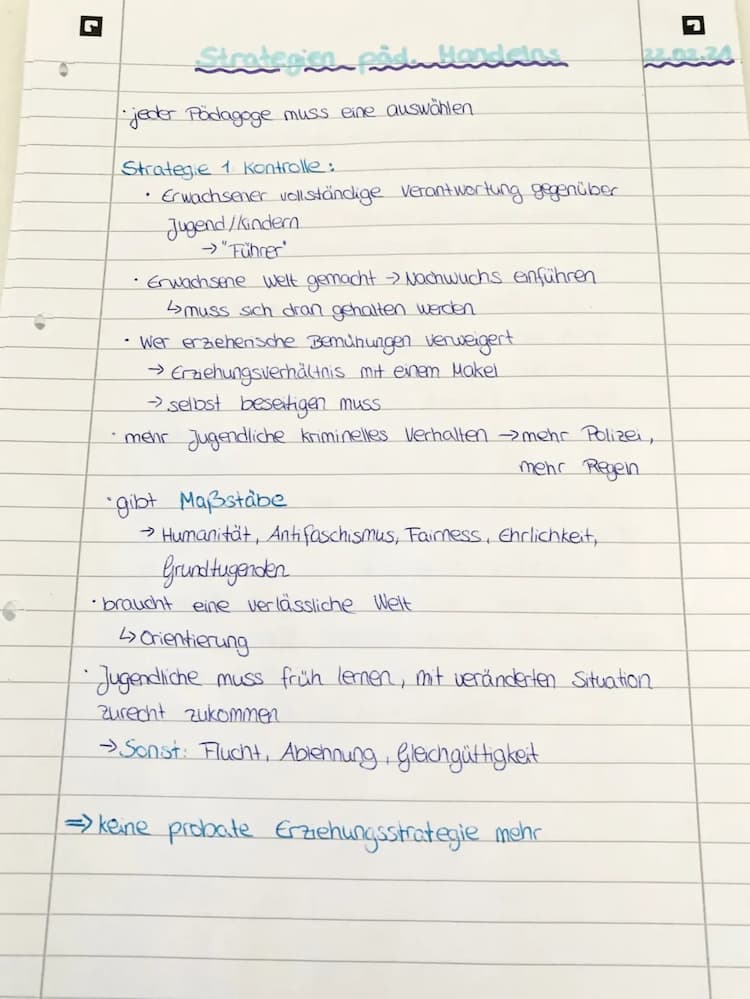 Strategien päd. Handelns 22.02.21
· jeder Pädagoge muss eine auswählen
Strategie 1 Kontrolle:
· Erwachsener vollständige Verantwortung gegenüber
Jugend/Kindern
→ "Führer"
· Erwachsene Welt gemacht → Nachwuchs einführen
↳ muss sich dran gehalten werden
· Wer erzieherische Bemühungen verweigert
→ Erziehungsverhältnis mit einem Makel
→ selbst beseitigen muss
· mehr Jugendliche kriminelles Verhalten → mehr Polizei,
mehr Regeln
· gibt Maßstäbe
→ Humanität, Antifaschismus, Fairness, Ehrlichkeit,
Grundtugenden
· braucht eine verlässliche Welt
↳ Orientierung
· Jugendliche muss früh lernen, mit veränderten Situation
zurecht zukommen
→ Sonst: Flucht, Ablehnung, Gleichgültigkeit
⇒ keine probate Erziehungsstrategie mehr